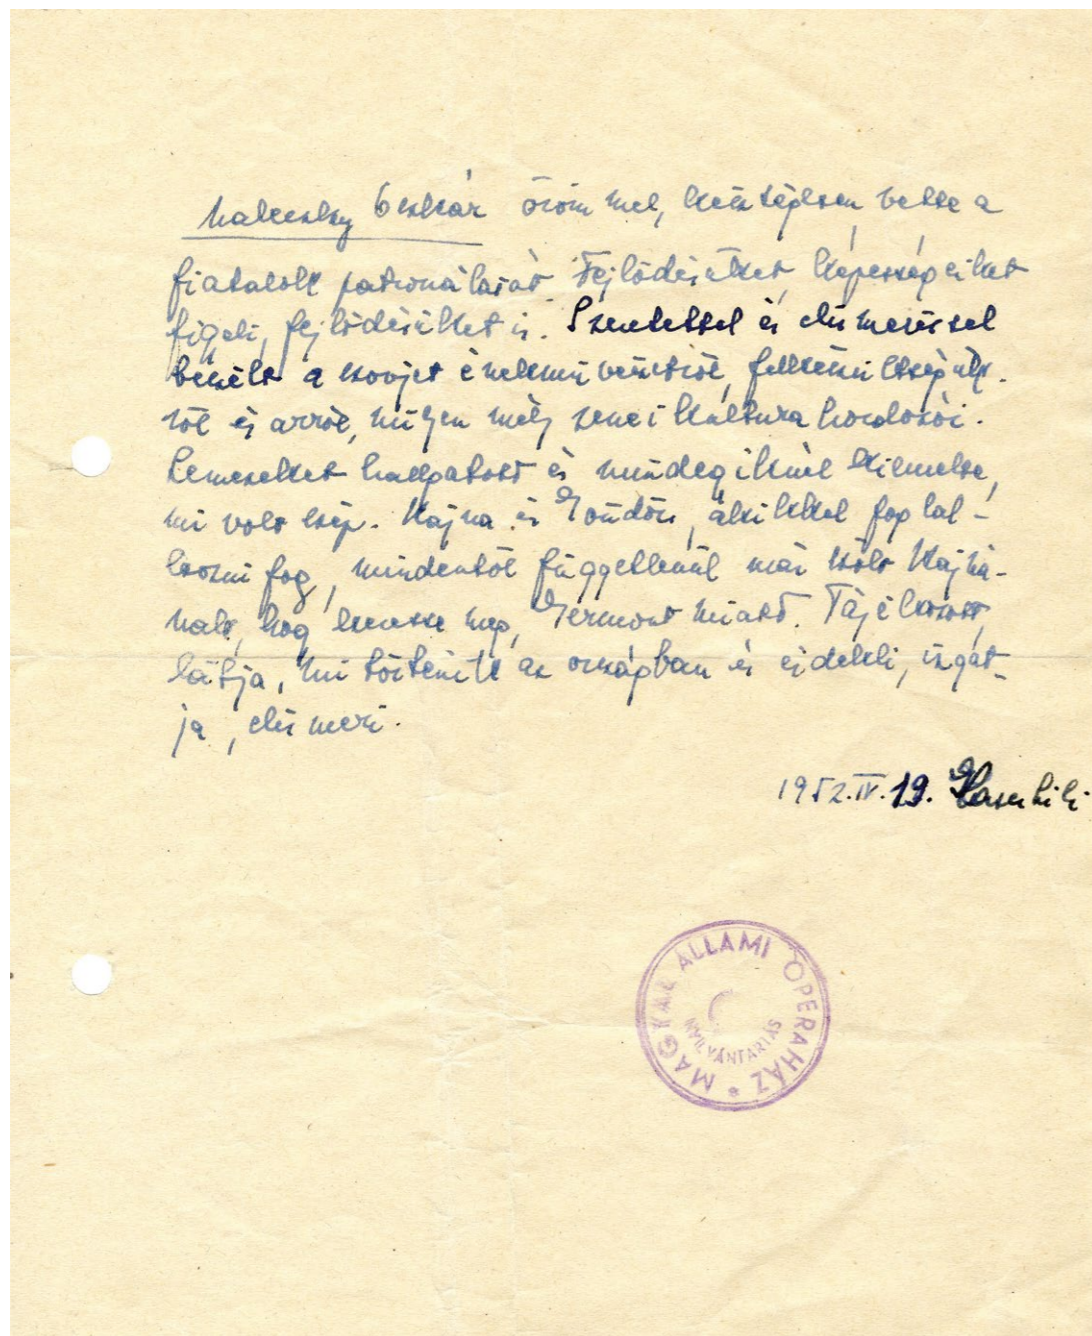 Maleczky Oszkár örömmel, készségesen vette a
fiatalok patronálását Fejlődésüket, képességeiket
figyeli, fejlődésüket is. Szeretettel és elismeréssel
beszélt a szovjet énekművészetről, felkészültségük-
ről és arról, milyen mély zenei kultura hordozói.
Lemezeket hallgatott és mindegyiknél kiemelte,
mi volt szép. Hajna és Göndör, akikkel foglal-
kozni fog, mindentől függetlenül már szólt Hajná-
nak, hogy keresse meg, Germont miatt. Tájékozott,
látja, mi történik az országban és érdekli, izgat-
ja, elismeri.
1952.IV.19.
MAGYAR ÁLLAMI OPERAHÁZ
NYILVÁNTARTÁS